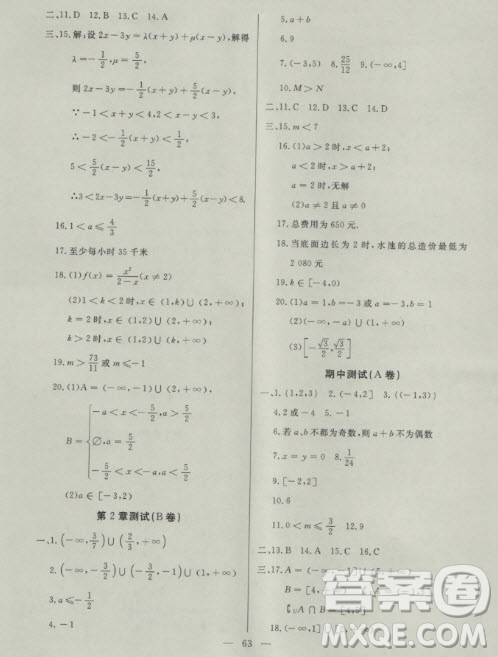 二、11.D 12.B 13.C 14.A
三、15.解:设2x-3y=λ(x+y)+μ(x-y),解得
λ=-1/2,μ=5/2,
则 2x-3y=-1/2(x+y)+5/2(x-y)
∵-1<x+y<4,2<x-y<3,
∴-2<-1/2(x+y)<1/2,
5<5/2(x-y)<15/2,
∴3<2x-3y=-1/2(x+y)+5/2(x-y)<8
16.1<a≤4/3
17.至少每小时35千米
18.(1)f(x)=x²/(2-x)(x≠2)
(2)1<k<2时,x∈(1,k)∪(2,+∞);
k=2时,x∈(1,2)∪(2,+∞);
k>2时,x∈(1,2)∪(k,+∞)
19.m>73/11或m≤-1
20.(1)A=(-∞,-1)∪(2,+∞)
-a<x<-5/2,a>5/2
B={∅,a=5/2
-5/2<x<-a,a<5/2
(2)a∈[-3,2)
第2章测试(B卷)
一、1.(-∞,3/7)∪(2/3,+∞)
2.(-∞,-3/2)∪(1,+∞)
3.a≤-
4.-1
5.a+b
6.9
7.(-3,5) 8.25/12 9.
10.M>N
二、11.C 12.D 13.C 14.D
三、15.m<7
16.(1)a>2时,x>a+2;
a<2时,x<a+2;
a=2时,无解
(2)a≠2
17.总费用为650元.
18.当底面边长为2时,水池的总造价最低为
2 080元
19.k∈[-4,0)
20.(1)a=-3或a=1
(2)(-∞,-4]∪[0,+∞)
(3)[-√3/2,√3/2]
期中测试(A卷)
一、1.{1,2,3} 2.(-4,2] 3.{(-1,3)}
4.2或- 5.-1
6.若a,b不都为奇数,则a+b不为偶数
7.x=y=0 8.1/24
9.[-2,2]
10.6
11.0<m≤ 12.9
二、13.B 14.A 15.C 16.C
三、17.A=(-∞,-2]
B=[4,
∁UA∩B=[4,
18.(-∞,-1)
63
答案圈
MXQE.COM